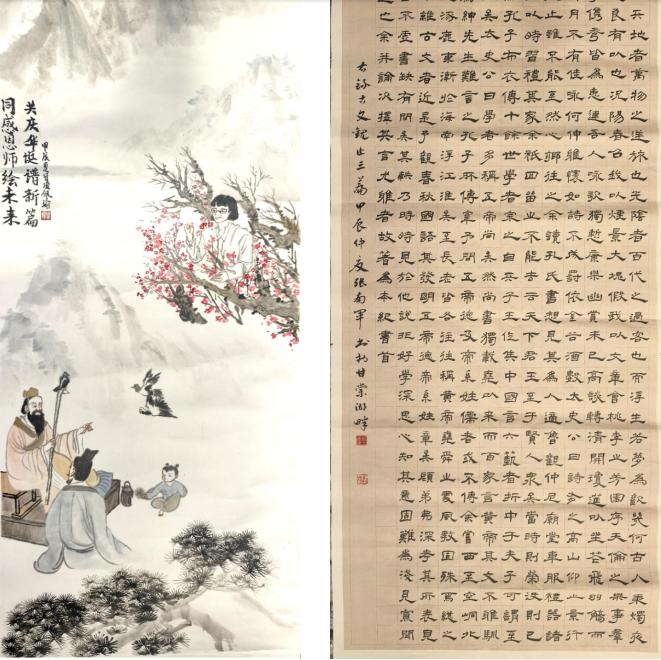 共庆华诞谱新篇
同感恩师绘未来
甲辰夏月
天地者萬物之逆旅也光陰者百代之過客也而浮生若夢為歡幾何古人秉燭夜
良有以也況陽春召我以煙景大塊假我以文章會桃李之芳園序天倫之樂事羣
儁秀皆為惠連吾人詠歌獨慙康樂幽賞未已高談轉清開瓊筵以坐花飛羽觴而
月不有佳詠何伸雅懷如詩不成罰依金谷酒數太史公曰詩有之高山仰止景行
止雖不能至然心鄉往之余讀孔氏書想見其為人適魯觀仲尼廟堂車服禮器諸
以時習禮其家余祇回留之不能去云天下君王至于賢人衆矣當時則榮沒則已
孔子布衣傳十餘世學者宗之自天子王侯中國言六藝者折中于夫子可謂至
矣太史公曰學者多稱五帝尚矣然尚書獨載堯以來而百家言黃帝其文不雅馴
紳先生難言之孔子所傳宰予問五帝德及帝系姓儒者或不傳余嘗西至空峒北
涿鹿東漸於海南浮江淮矣至長老皆各往往稱黃帝堯舜之處風教固殊焉總之
離古文者近是予觀春秋國語其發明五帝德帝系姓章矣顧弟弗深考其所表見
不虛書缺有間矣其軼乃時時見於他說非好學深思心知其意固難為淺見寡聞
也余并論次擇其言尤雅者故著為本紀書首
右錄古文觀止三篇甲辰仲夏張南軍書於甘棠湖畔